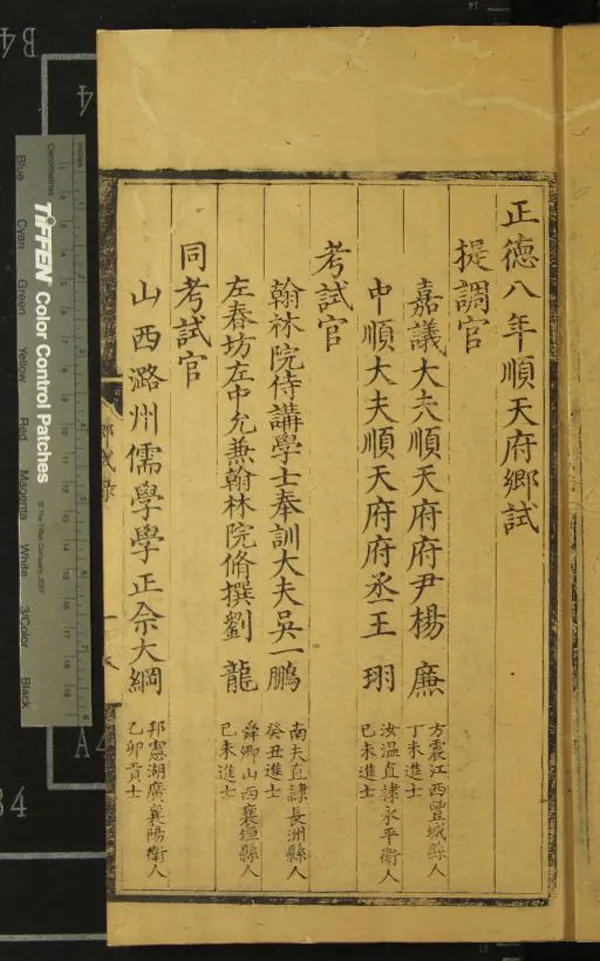 正德八年順天府鄉試
提調官
嘉議大夫順天府府尹楊 廉
方震江西豐城縣人
丁未進士
中順大夫順天府府丞王 珝
汝溫直隸永平衛人
己未進士
考試官
翰林院侍講學士奉訓大夫吳一鵬
南夫直隸長洲縣人
癸丑進士
左春坊左中允兼翰林院脩撰劉 龍
舜卿山西襄垣縣人
己未進士
同考試官
山西潞州儒學學正佘大綱
邦憲湖廣襄陽衛人
乙卯貢士
TIFFEN Color Control Patches
© The Tiffen Company, 2007
Centimetres
Inches
Blue
Cyan
Green
Yellow
Red
Magenta
White
3/Color
Black
B4
4
A4